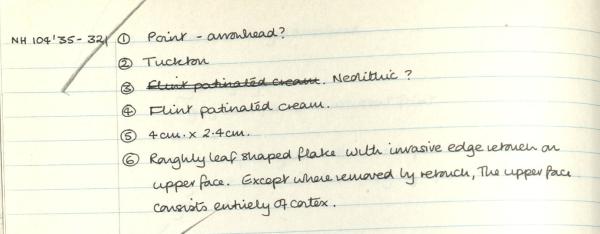 NH 104'35 - 321 ① Point - arrowhead?
② Tuckton
③ Flint patinated cream. Neolithic ?
④ Flint patinated cream.
⑤ 4cm. x 2.4cm.
⑥ Roughly leaf shaped flake with invasive edge retouch on
upper face. Except where removed by retouch, The upper face
consists entirely of cortex.